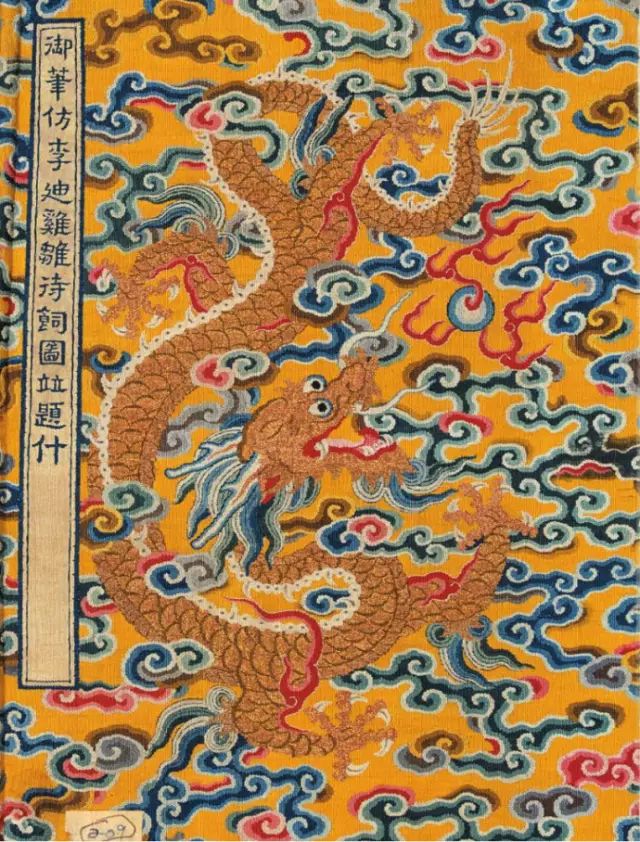 御筆仿李迪雞雛待飼圖竝題什
a-09